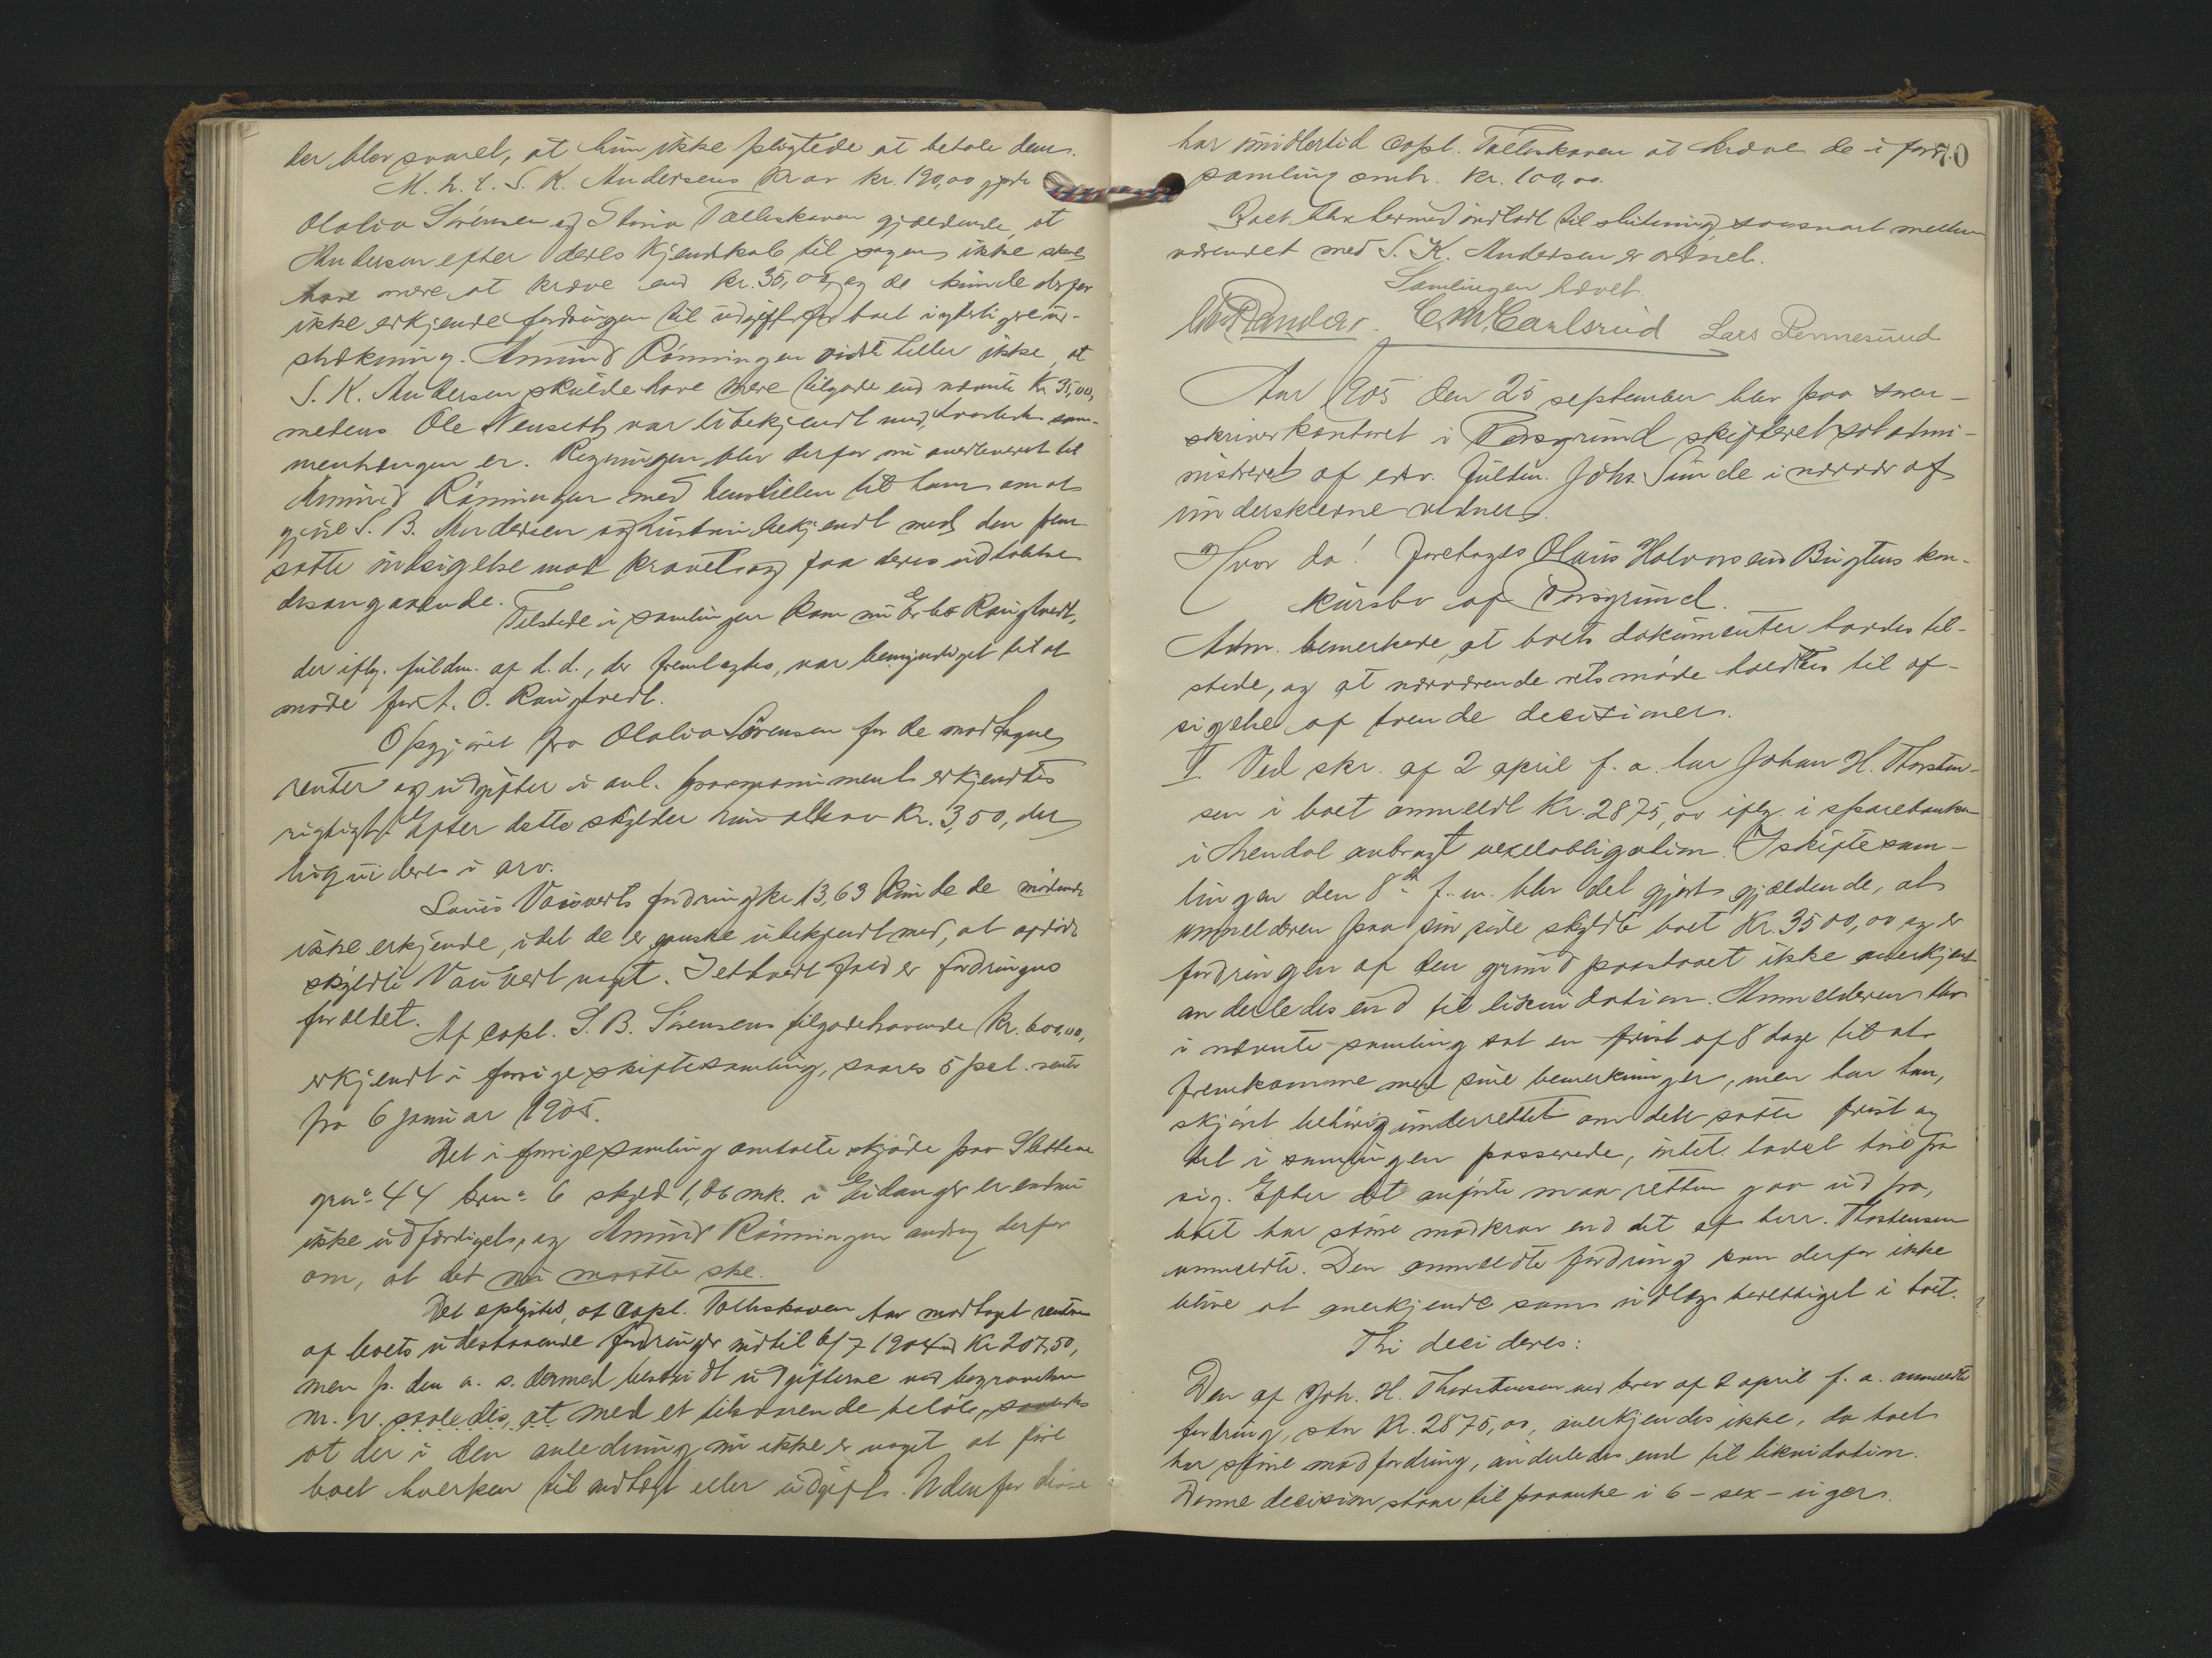 der blev svaret, at hun ikke pligtede at betale dem.
M. h. t. S. K. Andersens krav kr. 190,00 gjorde
Olalia Sørensen og Stina Tollerskaven gjældende, at
Andersen efter deres kjendskab til sagen ikke skal
have mere at kræve end kr. 35,00, og de kunde derfor
ikke erkjende fordringen til udgift for boet i yderligere ud-
strækning. Amund Rönningen vidste heller ikke, at
S. K. Andersen skulde have mere tilgode end nævnte kr. 35,00,
medens Ole Versett var ubekjendt med, hvorledes sam-
menhængen er. Regningen blev derfor nu overleveret til
Amund Rönningen med henstillen til ham om at
gjøre S. B. Andersen og hustru bekjendt med den frem-
satte indsigelse mod kravet og faa deres udtalelse
desangaaende.
Tilstede i samlingen kom nu Rougtvedt,
der iflg. fuldm. af d. d., der fremlagtes, var bemyndiget til at
møde for A. O. Rougtvedt.
Opgjøret fra Olalia Sörensen for de modtagne
renter og udgifter i anl. erkjendtes
rigtigt. Efter dette skylder hun altsaa kr. 3,50, der
liquideres i arv.
Louis fordring kr. 13,63 kunde de mödende
ikke erkjende, idet de er ganske ubekjendt med, at afdöde
skyldte noget. I ethvert fald er fordringen
foreldet.
Af capt. S. B. Sörensens tilgodehavende kr. 600,00,
erkjendt i forrige skiftesamling, svares 5 pct. rente
fra 6 januar 1905.
Det i forrige samling omtalte skjöde paa Slottene
gno. 44 bno. 6 skyld 1,06 mk. i Eidanger er endnu
ikke udfærdiget, og Amund Rönningen androg derfor
om, at det nu maatte ske.
Det oplystes, at capt. Tollerskaven har modtaget renterne
af boets udestaaende fordringer indtil 6/7 1904 med kr. 207,50,
men p. den a. s. dermed bestridt udgifterne ved begravelsen
m. v. saaledes, at med et tilsvarende beløb,
at der i den anledning nu ikke er noget at före
boet hverken til indtægt eller udgift. Udenfor disse
har imidlertid capt. Tollerskaven at kræve de i forr.
70
samling omh. kr. 100,00.
Boet blev hermed indladt til slutning saasnart mellem-
værendet med S. K. Andersen er ordnet.
Samlingen hævet.
C. M. Carlsrud Lars Pennesund
Aar 1905 den 25 september blev paa soren-
skriverkontoret i Porsgrund skifteret sat admi-
nistreret af edsv. fuldm. Johs. Sunde i nærvær af
underskrevne vidner.
Hvor da! Foretoges Olaus Halvorsens Bugtens kon-
kursbo af Porsgrund.
Adm. bemerkede, at boets dokumenter havdes til-
stede, og at nærværende retsmöde holdtes til af-
sigelse af tvende decisioner.
I. Ved skr. af 2 april f. a. har Johan H. Thorsten-
sen i boet anmeldt kr. 2875,00 iflg. i sparebanken
i Arendal anbragt vexelobligation. I skiftesam-
lingen den 8de f. m. blev det gjort gjældende, at
anmelderen paa sin side skyldte boet kr. 3500,00 og er
fordringen af den grund paastaaet ikke anerkjent
anderledes end til likvidation. Anmelderen har
i nævnte samling sat en frist af 8 dage til at
fremkomme med sine bemerkninger, men har han,
skjönt behörig underrettet om den satte frist og
det i samlingen passerede, intet ladet höre fra
sig. Efter det anförte maa retten gaa ud fra,
boet har större modkrav end det af herr. Thorstensen
anmeldte. Den anmeldte fordring kan derfor ikke
blive at anerkjende som udlægsberettiget i boet.
Thi decideres:
Den af Joh. H. Thorstensen ved brev af 2 april f. a. anmeldte
fordring, stor kr. 2875,00, anerkjendes ikke, da boet
har större modfordring, anderledes end til likvidation.
Denne decision staar til paaanke i 6 - sex - uger.